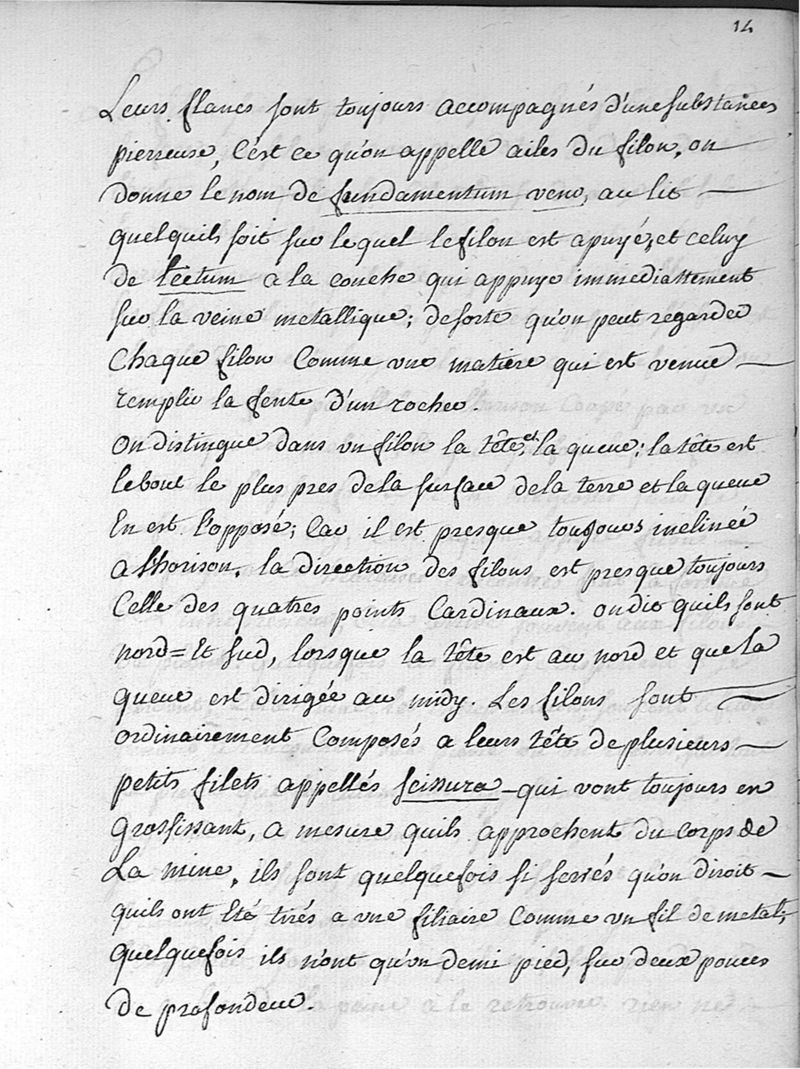 14
Leurs flancs sont toujours accompagnés d'une substances
pierreuse, C'est ce qu'on appelle ailes du filon, on
donne le nom de fundamentum venæ, au lit
quelquils soit sur lequel le filon est apuyé, et celuy
de tectum a la couche qui appuye immediattement
sur la veine metallique; desorte qu'on peut regarder
Chaque filon Comme une matiere qui est venue
remplir la fente d'un rocher.
On distingue dans un filon la tête, et la queue; la tête est
le bout le plus pres de la surface de la terre et la queue
En est l'opposé; Car il est presque toujours inclinée
a l'horison. la direction des filons est presque toujours
Celle des quatres points Cardinaux. on dit quils sont
nord = Et Sud, lorsque la tête est au nord et que la
queue est dirigée au midy. Les filons sont
ordinairement Composés a leurs tête de plusieurs
petits filets appellés scissura qui vont toujours en
Grossissant, a mesure quils approchent du Corps de
La mine, ils sont quelquefois si serrés qu'on diroit
quils ont Eté tirés a une filiaire Comme un fil de metal;
quelquefois ils n'ont qu'un demi pied, sur deux pouces
de profondeur.